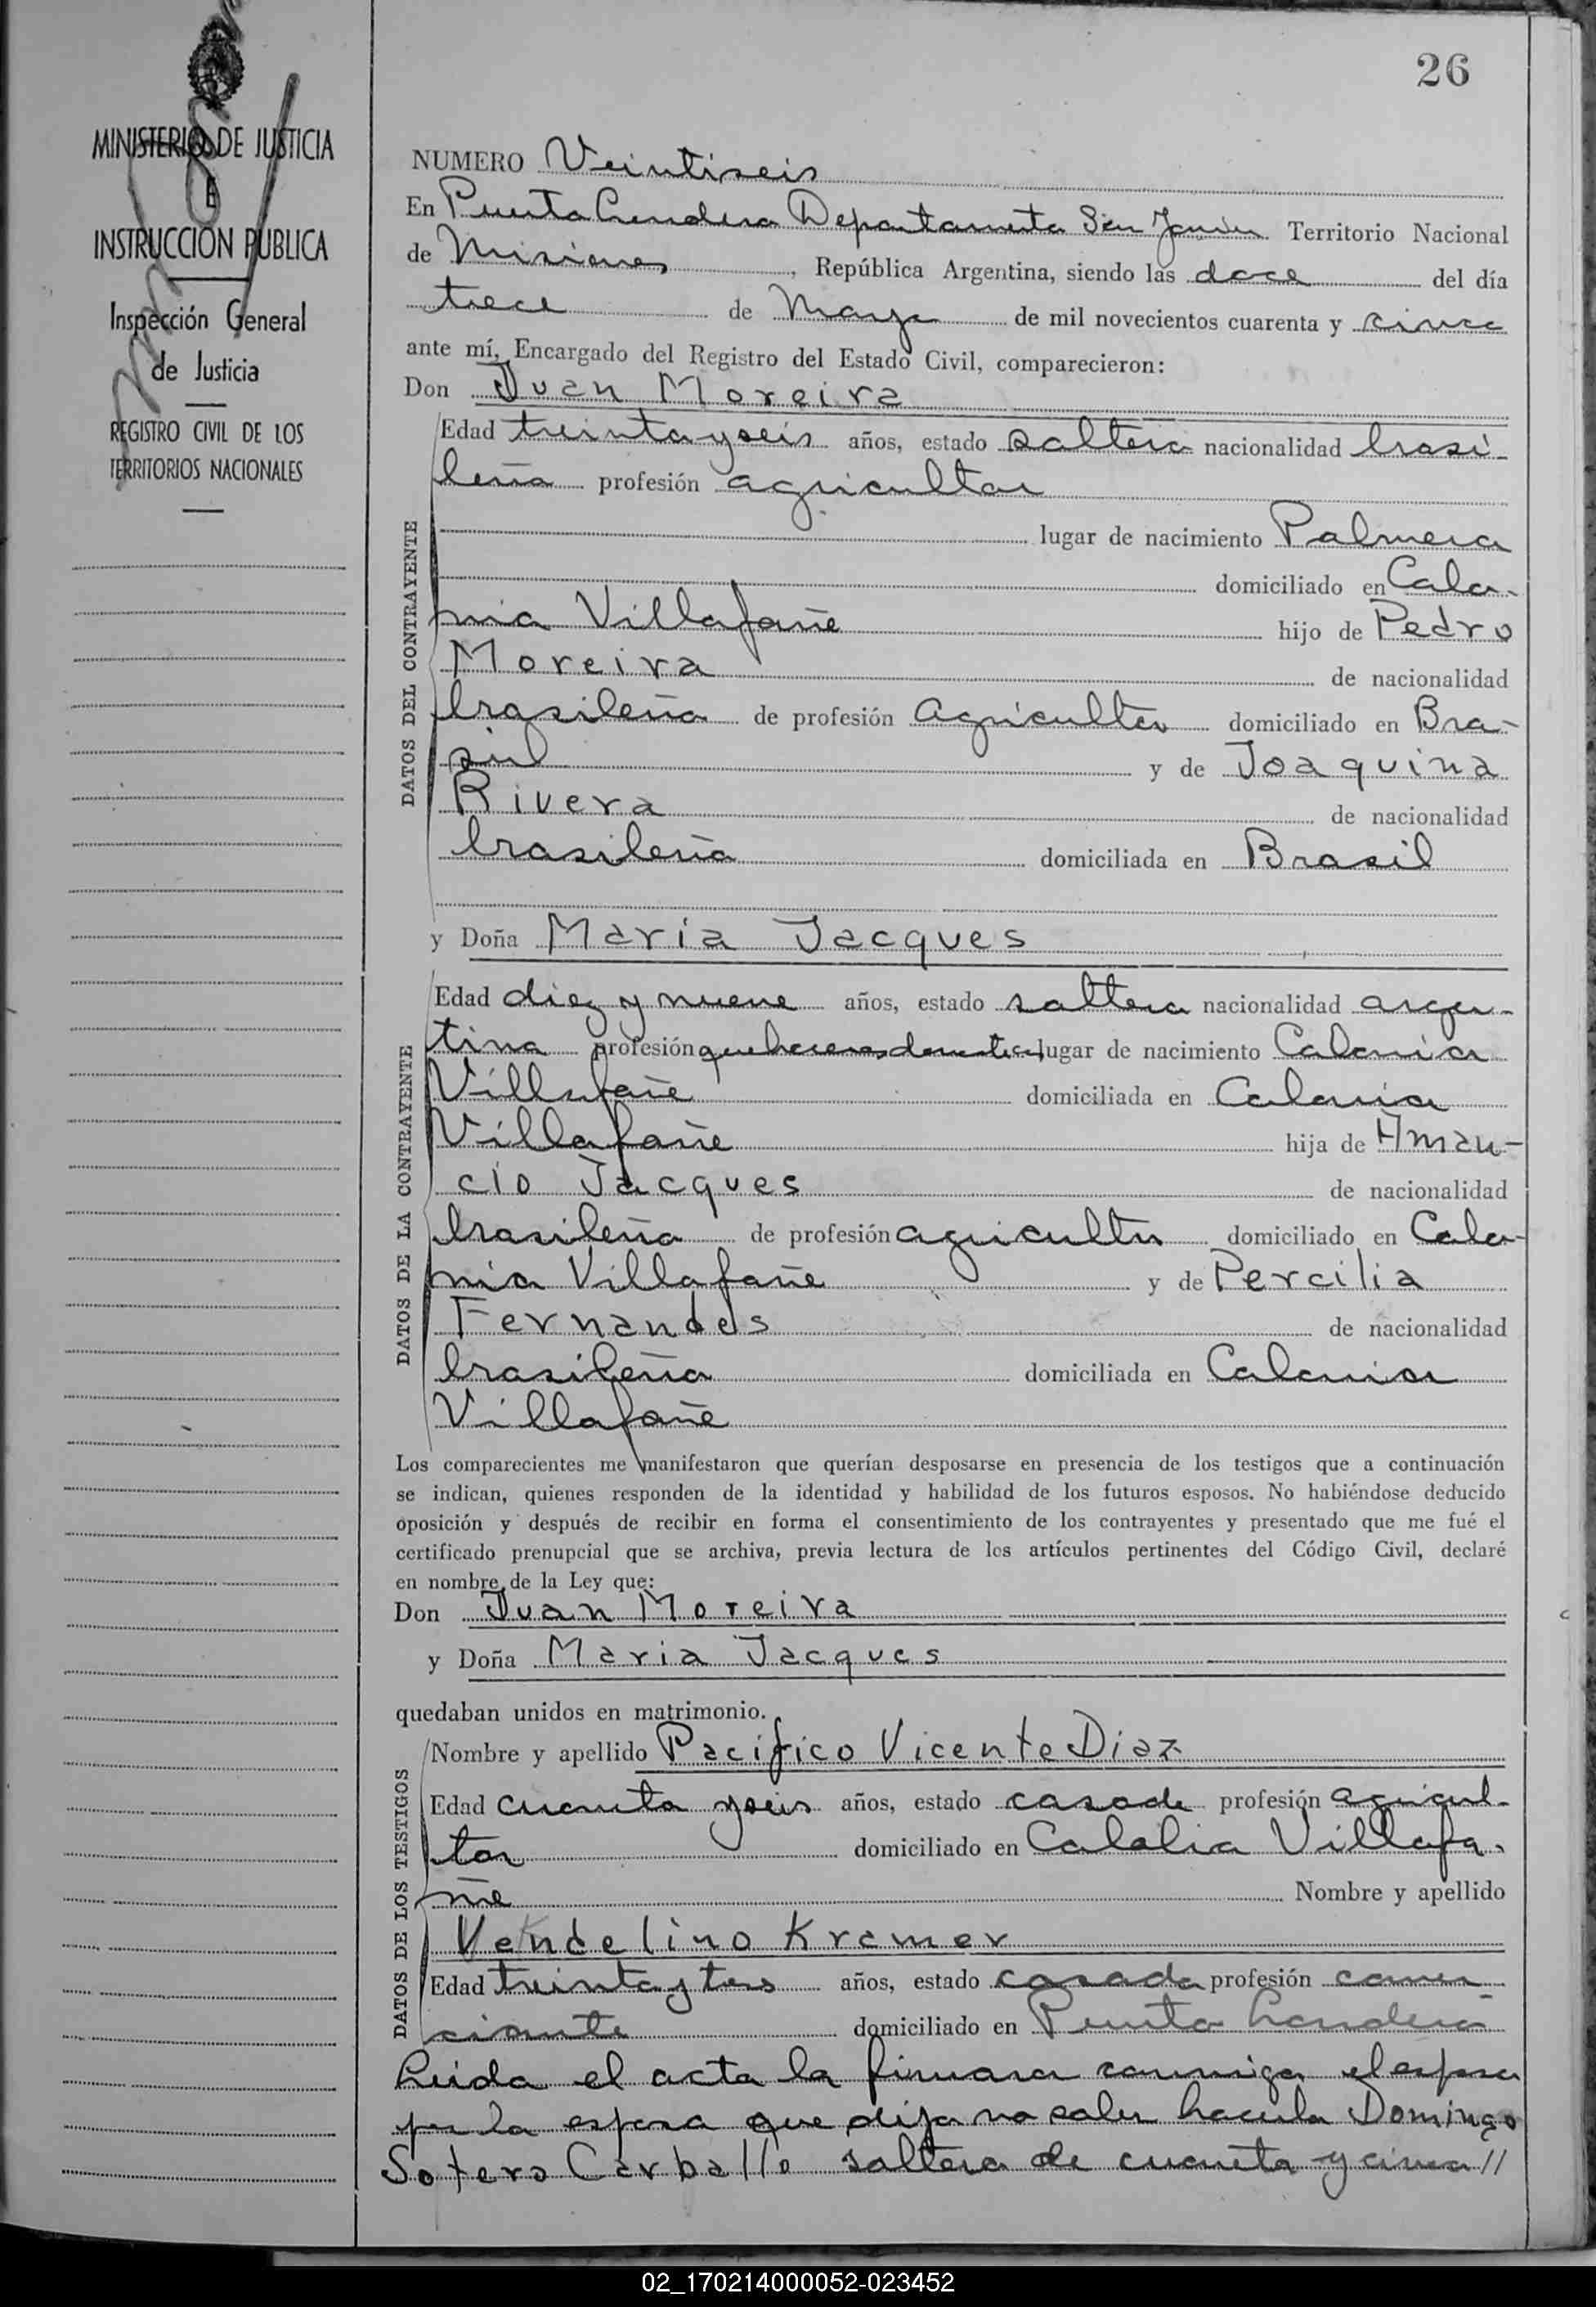 26
MINISTERIO DE JUSTICIA
E
INSTRUCCIÓN PUBLICA
Inspección General
de Justicia
REGISTRO CIVIL DE LOS
TERRITORIOS NACIONALES
NUMERO Veintiseis
En Puerto Londero Departamento San Javier Territorio Nacional
de Misiones, República Argentina, siendo las doce del día
trece de Mayo de mil novecientos cuarenta y cinco
ante mí, Encargado del Registro del Estado Civil, comparecieron:
Don Juan Moreira
DATOS DEL CONTRAYENTE
Edad treinta y seis años, estado soltero nacionalidad brasi-
leña profesión agricultor
lugar de nacimiento Palmera
domiciliado en Colo-
nia Villafañe hijo de Pedro
Moreira de nacionalidad
brasileña de profesión agricultor domiciliado en Bra-
sil y de Joaquina
Rivera de nacionalidad
brasileña domiciliada en Brasil
y Doña Maria Jacques
DATOS DE LA CONTRAYENTE
Edad diez y nueve años, estado soltera nacionalidad argen-
tina profesión quehaceres domesticos lugar de nacimiento Colonia
Villafañe domiciliada en Colonia
Villafañe hija de Aman-
cio Jacques de nacionalidad
brasileña de profesión agricultor domiciliado en Colo-
nia Villafañe y de Percilia
Fernandes de nacionalidad
brasileña domiciliada en Colonia
Villafañe
Los comparecientes me manifestaron que querían desposarse en presencia de los testigos que a continuación
se indican, quienes responden de la identidad y habilidad de los futuros esposos. No habiéndose deducido
oposición y después de recibir en forma el consentimiento de los contrayentes y presentado que me fué el
certificado prenupcial que se archiva, previa lectura de los artículos pertinentes del Código Civil, declaré
en nombre de la Ley que:
Don Juan Moreira
y Doña Maria Jacques
quedaban unidos en matrimonio.
DATOS DE LOS TESTIGOS
Nombre y apellido Pacifico Vicente Diaz
Edad cuarenta y seis años, estado casado profesión agricul-
tor domiciliado en Cololia Villafa-
ñe Nombre y apellido
Vendelino Kramer
Edad treinta y tres años, estado casado profesión comer
ciante domiciliado en Puerto Londero
Leida el acta la firmaron conmigo el esposo
por la esposa que dijo no saber hacerlo Domingo
Sotero Carballo soltero de cuarenta y cinco //
02_170214000052-023452